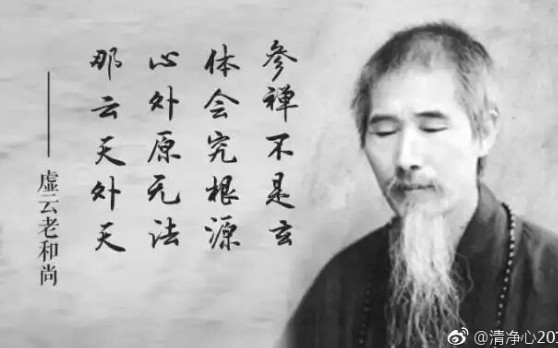 参禅不是玄
体会究根源
心外原无法
那云天外天
——虚云老和尚
@清净心20